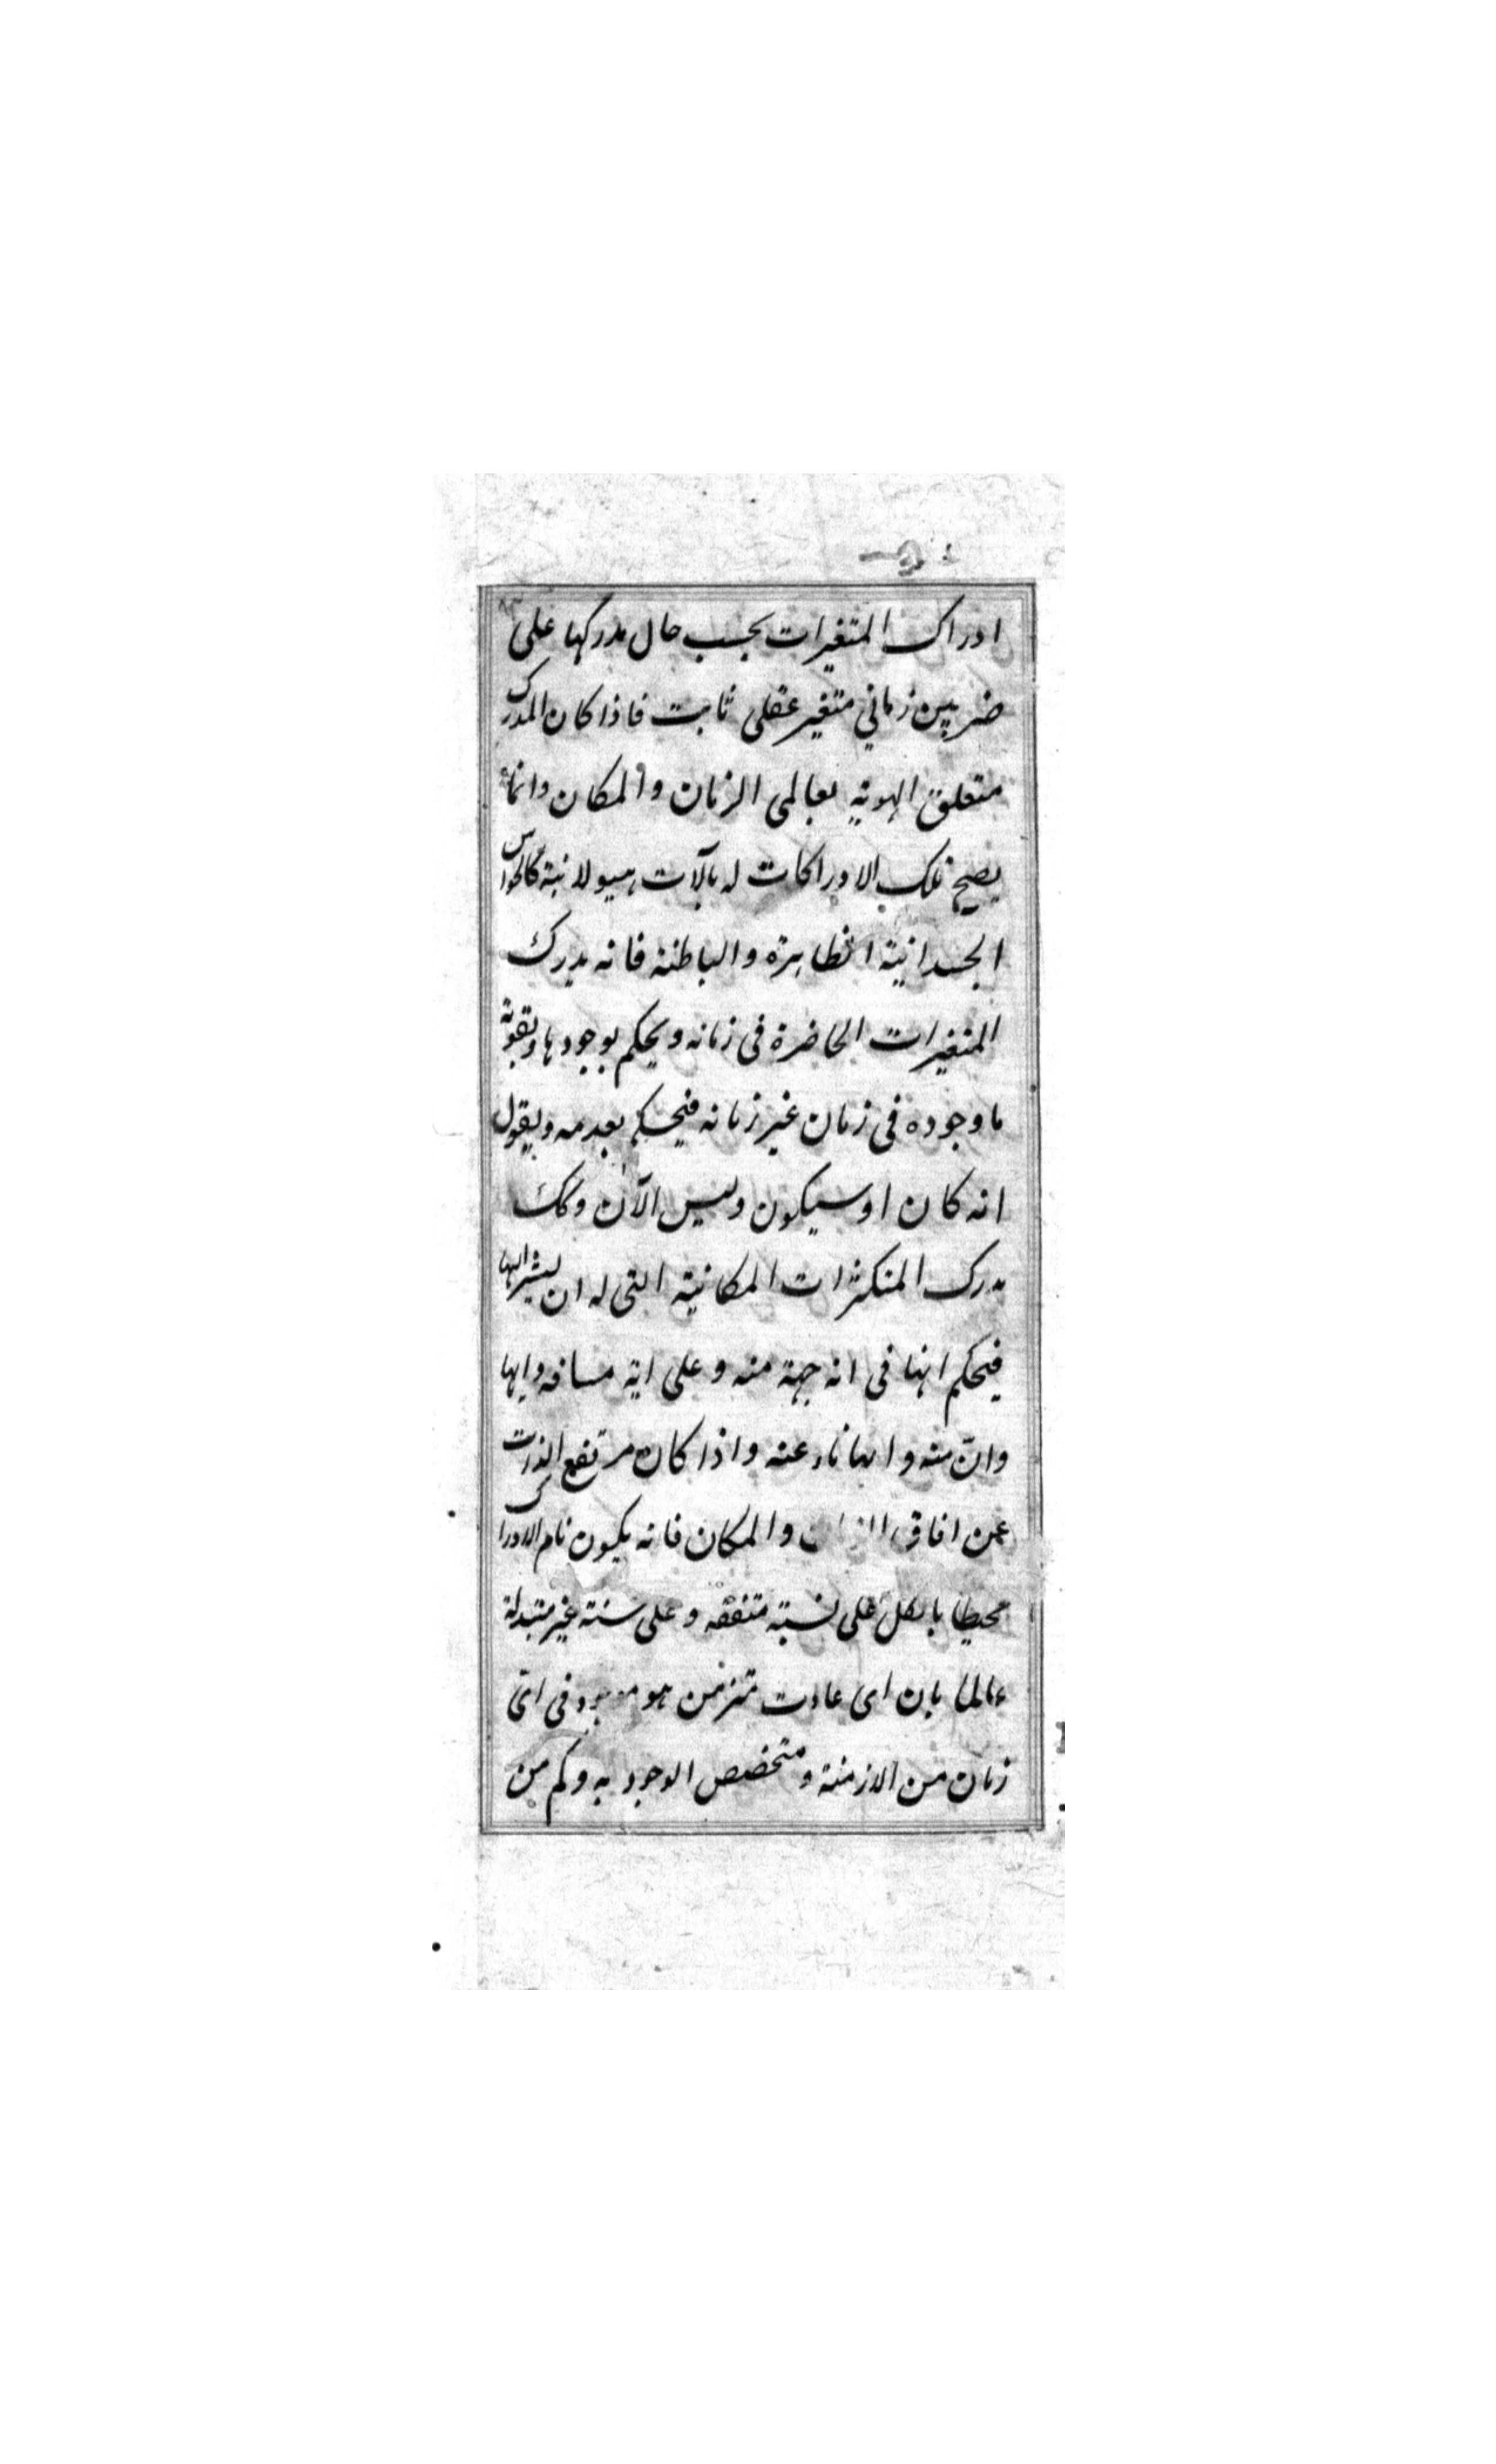 ادراك المتغيرات بحسب حال مدركها على
ضربين زماني متغير عقلى ثابت فاذا كان المدرك
متعلق الهوية بعالمى الزمان والمكان وانما
يصح تلك الادراكات له بآلات هيولانية كالحواس
الجسدانية الظاهرة والباطنة فانه يدرك
المتغيرات الحاضرة فى زمانه ويحكم بوجودها ويفوته
ما وجوده فى زمان غير زمانه فيحكم بعدمه ويقول
انه كان او سيكون وليس الآن وكك
يدرك المتكثرات المكانية التى له ان يشير اليها
فيحكم انها فى اية جهة منه وعلى اية مسافه وايها
دان منه وايها ناء عنه واذا كان مرتفع الذات
عن افاق الزمان والمكان فانه يكون تام الادراك
محيطا بالكل على نسبة متفقه وعلى سنة غير متبدلة
عالما بان اى حادث متزمن هو موجود فى اى
زمان من الازمنة ومتخصص الوجود به وكم من